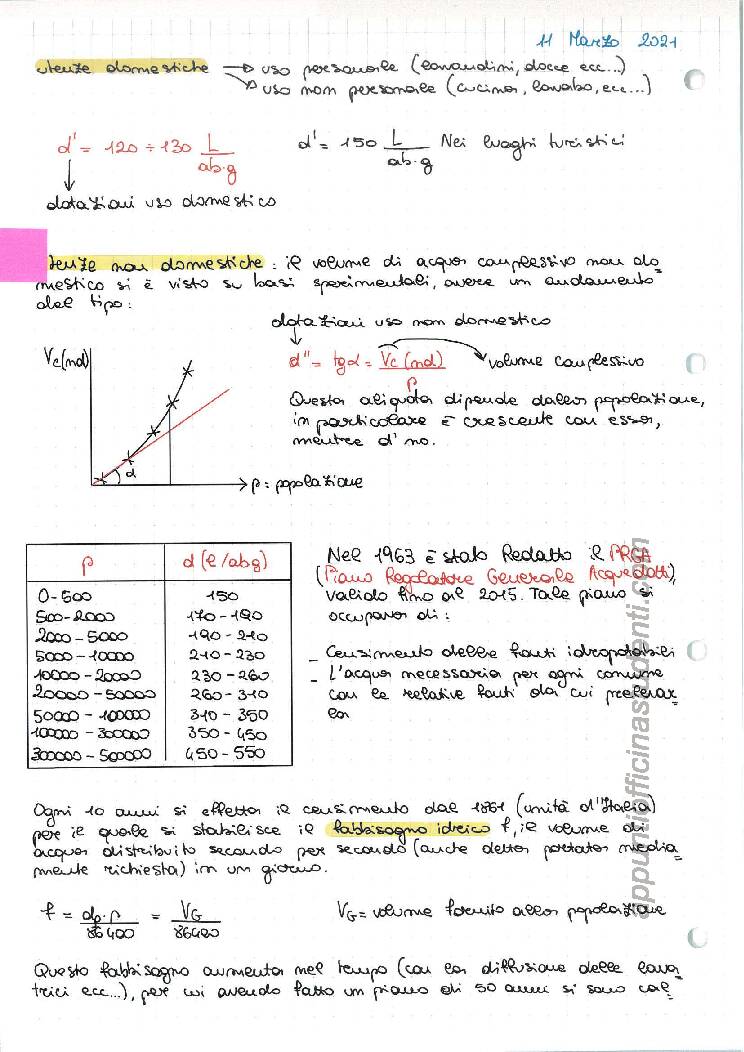 11 Marzo 2021
utenze domestiche → uso personale (lavandini, docce ecc...)
↘ uso non personale (cucina, lavabo, ecc...)
d' = 120 ÷ 130 L/ab·g
d' = 150 L/ab·g Nei luoghi turistici
dotazioni uso domestico
tenze non domestiche: il volume di acqua complessivo non do=
mestico si è visto su basi sperimentali, avere un andamento
del tipo:
dotazioni uso non domestico
Vc(nd)
d" = tgα = Vc(nd)/p → volume complessivo
Questa aliquota dipende dalla popolazione,
in particolare è crescente con essa,
mentre d' no.
α
p = popolazione
p d (l/abg)
0-500 150
500-2000 170-190
2000-5000 190-210
5000-10000 210-230
10000-20000 230-260
20000-50000 260-310
50000-100000 310-350
100000-300000 350-450
300000-500000 450-550
Nel 1963 è stato Redatto il PRGA
(Piano Regolatore Generale Acquedotti),
valido fino al 2015. Tale piano si
occupava di:
- Censimento delle fonti idropotabili
- L'acqua necessaria per ogni comune
con le relative fonti da cui prelevar=
la
Ogni 10 anni si effettua il censimento dal 1861 (unità d'Italia)
per il quale si stabilisce il fabbisogno idrico f, il volume di
acqua distribuito secondo per secondo (anche detta portata media=
mente richiesta) in un giorno.
f = dp·p/86400 = VG/86400
VG = volume fornito alla popolazione
Questo fabbisogno aumenta nel tempo (con la diffusione delle lava=
trici ecc...), per cui avendo fatto un piano di 50 anni si sono cal=
appuntiofficinastudenti.com